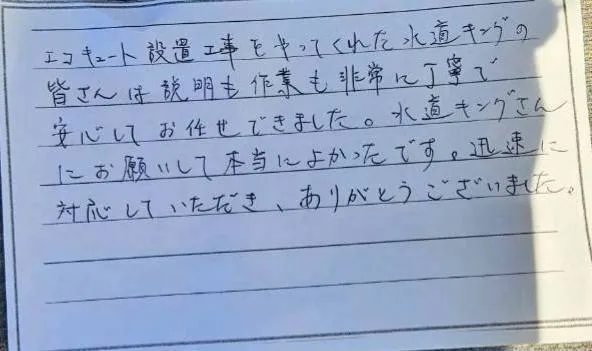 エコキュート設置工事をやってくれた水道キングの
皆さんは説明も作業も非常に丁寧で
安心してお任せできました。水道キングさん
にお願いして本当によかったです。迅速に
対応していただき、ありがとうございました。